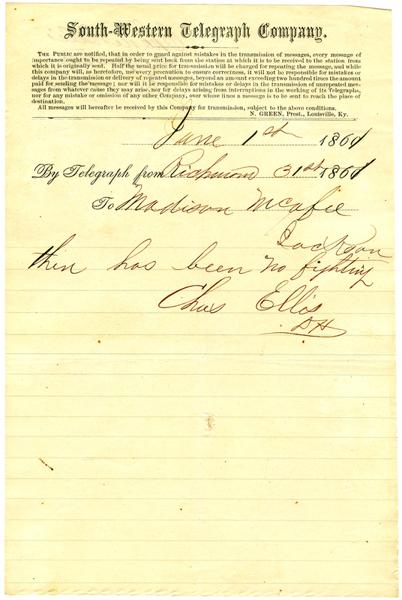 South-Western Telegraph Company.
THE PUBLIC are notified, that in order to guard against mistakes in the transmission of messages, every message of
importance ought to be repeated by being sent back from the station at which it is to be received to the station from
which it is originally sent. Half the usual price for transmission will be charged for repeating the message, and while
this company will, as heretofore, use every precaution to ensure correctness, it will not be responsible for mistakes or
delays in the transmission or delivery of repeated messages, beyond an amount exceeding two hundred times the amount
paid for sending the message; nor will it be responsible for mistakes or delays in the transmission of unrepeated messages
from whatever cause they may arise, nor for delays arising from interruptions in the working of its Telegraphs,
nor for any mistake or omission of any other Company, over whose lines a message is to be sent to reach the place of
destination.
All messages will hereafter be received by this Company for transmission, subject to the above conditions.
N. GREEN, Prest., Louisville, Ky.
June 1st 1861
By Telegraph from Richmond 31st 1861
To Madison McAfee
Jackson
then has been no fighting
Chas Ellis
DH